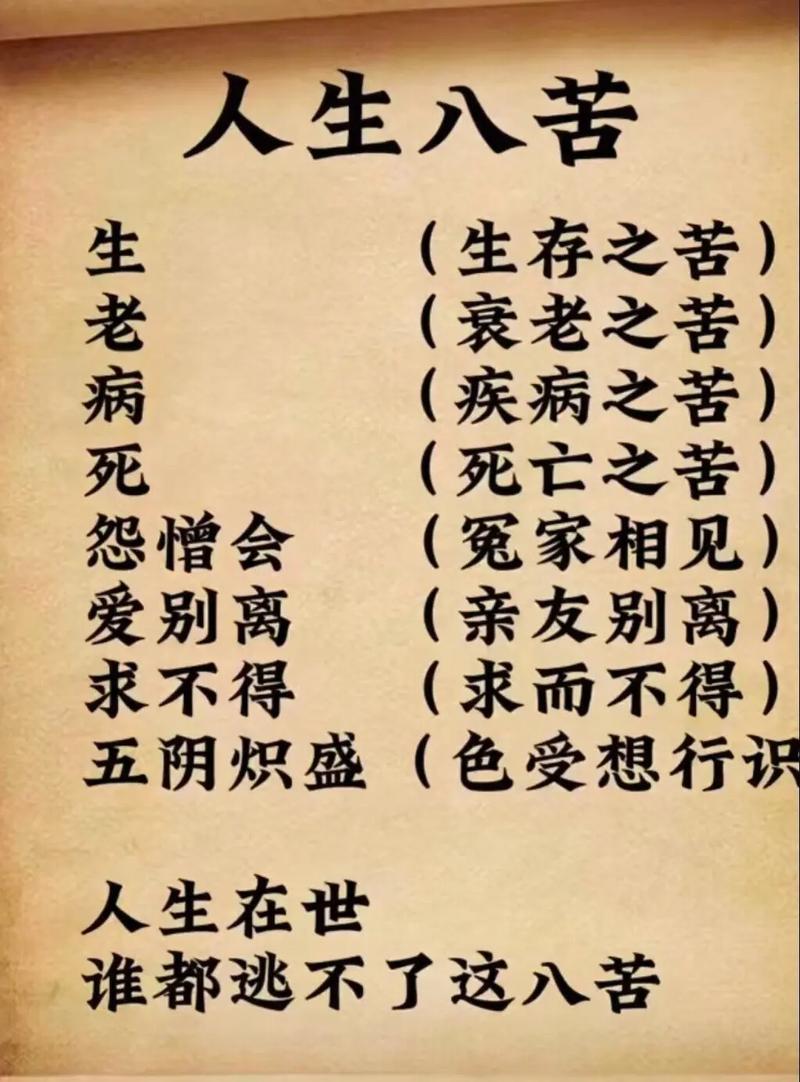 人生八苦
生 （生存之苦）
老 （衰老之苦）
病 （疾病之苦）
死 （死亡之苦）
怨憎会 （冤家相见）
爱别离 （亲友别离）
求不得 （求而不得）
五阴炽盛 （色受想行识
人生在世
谁都逃不了这八苦